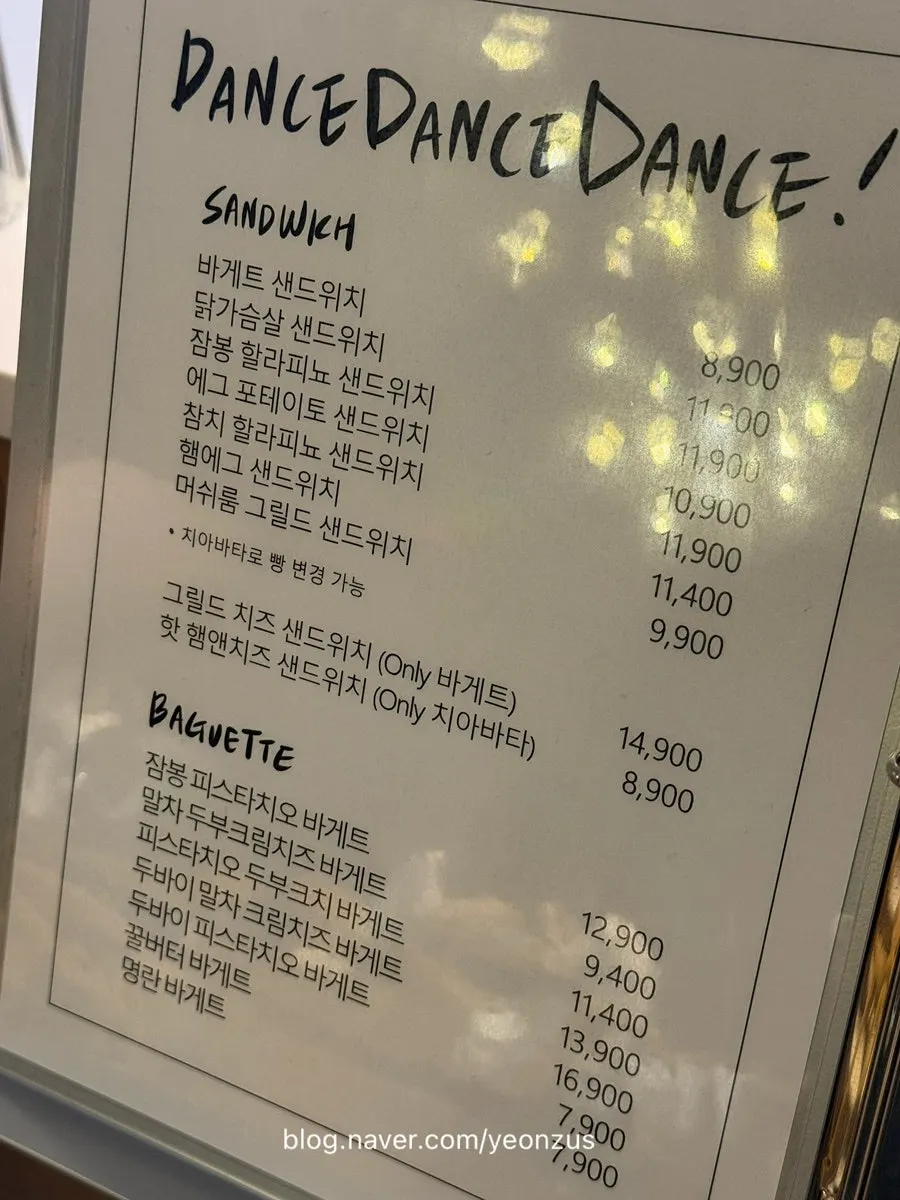 DANCE DANCE DANCE!
SANDWICH
바게트 샌드위치 8,900
닭가슴살 샌드위치 11,900
잠봉 할라피뇨 샌드위치 11,900
에그 포테이토 샌드위치 10,900
참치 할라피뇨 샌드위치 11,900
햄에그 샌드위치 11,400
머쉬룸 그릴드 샌드위치 9,900
• 치아바타로 빵 변경 가능
그릴드 치즈 샌드위치 (Only 바게트) 14,900
핫 햄앤치즈 샌드위치 (Only 치아바타) 8,900
BAGUETTE
잠봉 피스타치오 바게트 12,900
말차 두부크림치즈 바게트 9,400
피스타치오 두부크치 바게트 11,400
두바이 말차 크림치즈 바게트 13,900
두바이 피스타치오 바게트 16,900
꿀버터 바게트 7,900
명란 바게트 7,900
blog.naver.com/yeonzus